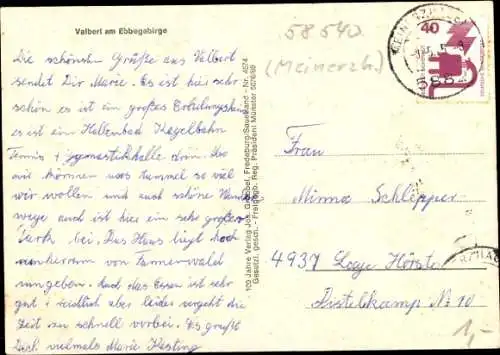 Valbert am Ebbegebirge
Die schönsten Grüße aus Valbert
sendet Dir Marie. Es ist hier sehr
schön es ist ein großes Erholungsheim
es ist ein Hallenbad Kegelbahn
Tennis + gymnastikhalle drin. Wo
wir können uns tummel so viel
wir wollen und auch schöne Wander
wege auch ist hier ein sehr großer
Park bei. Das Haus liegt hoch
umherum von Tannenwald
umgeben. Auch das Essen ist sehr
gut + reichlich aber leider vergeht die
Zeit zu schnell vorbei. Es grüßt
Dich vielmals Marie Kesting
100 Jahre Verlag Jos. Grobbel, Fredeburg/Sauerland - Nr. 4674
Gesetzl. gesch. - Freigegb. Reg. Präsident Münster 5076/69
58540
(Meinerzh.)
40
588
Frau
Minna Schlepper
4937 Lage Hörste
Distelkamp Nr 10
1,-